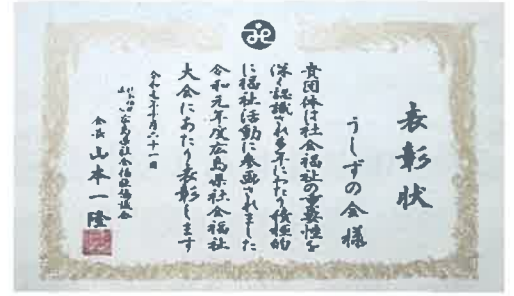 表彰状
うしずの会様
貴団体は社会福祉の重要性を
深く認識され多年にわたり積極的
に福祉活動に参画されました
令和元年度広島県社会福祉
大会にあたり表彰します
令和元年十月二十一日
広島県社会福祉協議会
会長 山本一隆